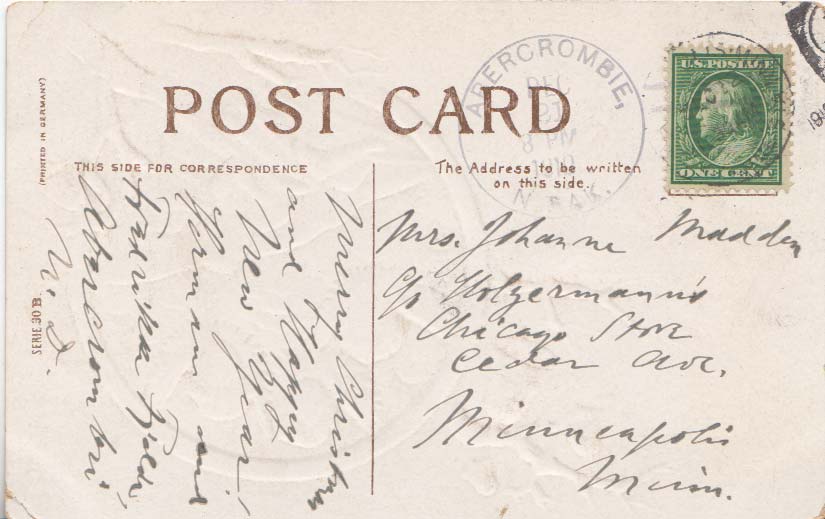 POST CARD
(PRINTED IN GERMANY)
THIS SIDE FOR CORRESPONDENCE
The Address to be written
on this side.
SERIE 30 B.
ABERCROMBIE,
DEC
8 PM
N. DAK.
U.S. POSTAGE
ONE CENT
Merry Christmas
and Happy
New Year!
Herman and
Fredrika
Abercrombi
N. D.
Mrs. Johanne Madden
c/o Holzermann's
Chicago Store
Cedar Ave.
Minneapolis
Minn.